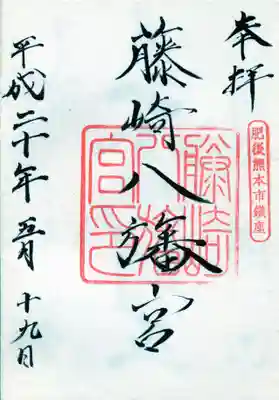 奉拝
肥後熊本市鎮座
藤崎八旛宮
藤崎
八旛
宮印
平成二十年 五月 十九日